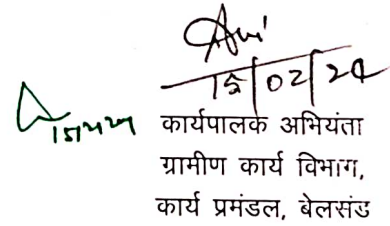 15/02/24
कार्यपालक अभियंता
ग्रामीण कार्य विभाग,
कार्य प्रमंडल, बेलसंड